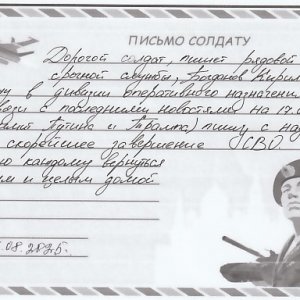 ПИСЬМО СОЛДАТУ
Дорогой солдат, пишет рядовой
срочной службы, Богданов Кирил
в дивизии оперативного назначени
с последними новостями на 17.0
Путина и Трампа) пишу с на
скорейшее завершение СВО
каждому вернуться
и целым домой
.08.2025г.